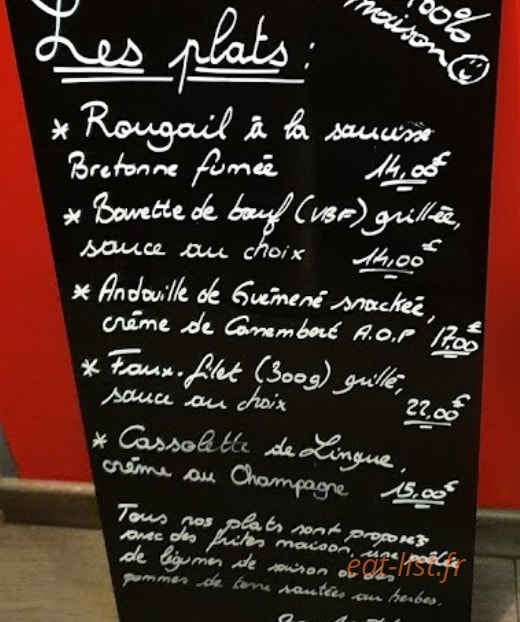 100%
maison
Les plats :
* Rougail à la saucisse
Bretonne fumée 14,00€
* Bavette de bœuf (VBF) grillée,
sauce au choix 14,00€
* Andouille de Guémené snackée,
crème de Camembert A.O.P 17,00€
* Faux-filet (300g) grillé,
sauce au choix 22,00€
* Cassolette de Lingue,
crème au Champagne 15,00€
Tous nos plats sont proposés
avec des frites maison, une poêlée
de légumes de saison ou des
pommes de terre sautées au herbes.
eat-list.fr